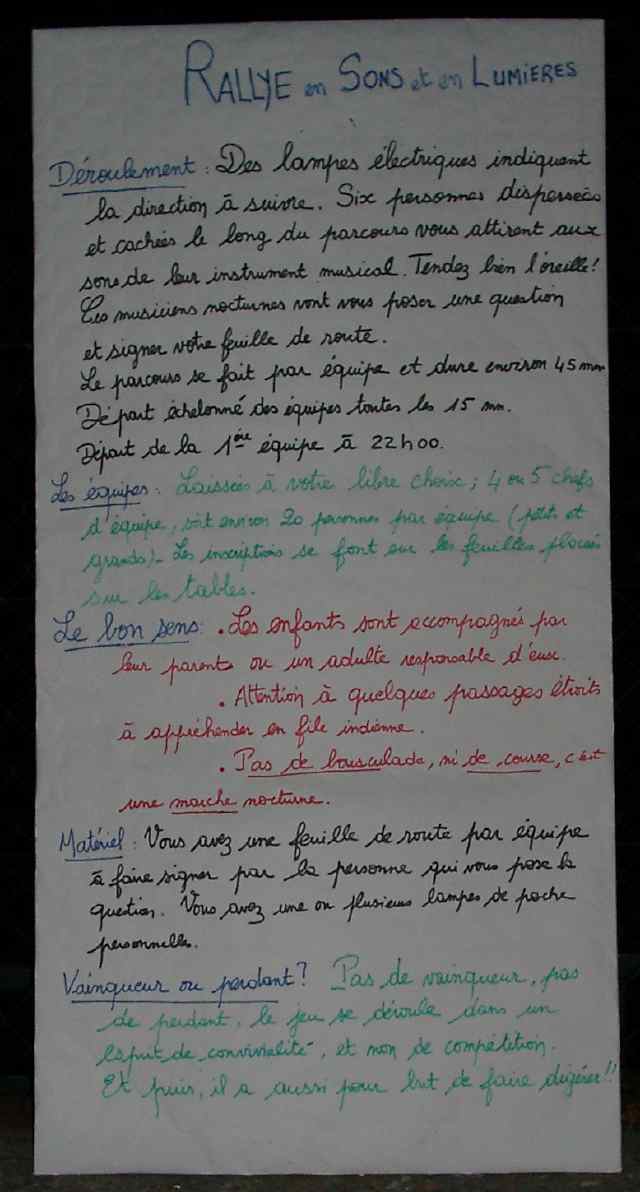 RALLYE en SONS et en LUMIERES
Déroulement : Des lampes électriques indiquent
la direction à suivre. Six personnes dispersées
et cachées le long du parcours vous attirent aux
sons de leur instrument musical. Tendez bien l'oreille!
Ces musiciens nocturnes vont vous poser une question
et signer votre feuille de route.
Le parcours se fait par équipe et dure environ 45 mn
Départ échelonné des équipes toutes les 15 mn.
Départ de la 1ère équipe à 22h00.
Les équipes : Laissées à votre libre choix ; 4 ou 5 chefs
d'équipe, soit environ 20 personnes par équipe (petits et
grands). Les inscriptions se font sur les feuilles placées
sur les tables.
Le bon sens : . Les enfants sont accompagnés par
leur parents ou un adulte responsable d'eux.
. Attention à quelques passages étroits
à appréhender en file indienne.
. Pas de bousculade, ni de course, c'est
une marche nocturne.
Matériel : Vous avez une feuille de route par équipe
à faire signer par la personne qui vous pose la
question. Vous avez une ou plusieurs lampes de poche
personnelles.
Vainqueur ou perdant ? Pas de vainqueur, pas
de perdant, le jeu se déroule dans un
esprit de convivialité, et non de compétition.
Et puis, il a aussi pour but de faire digérer!!